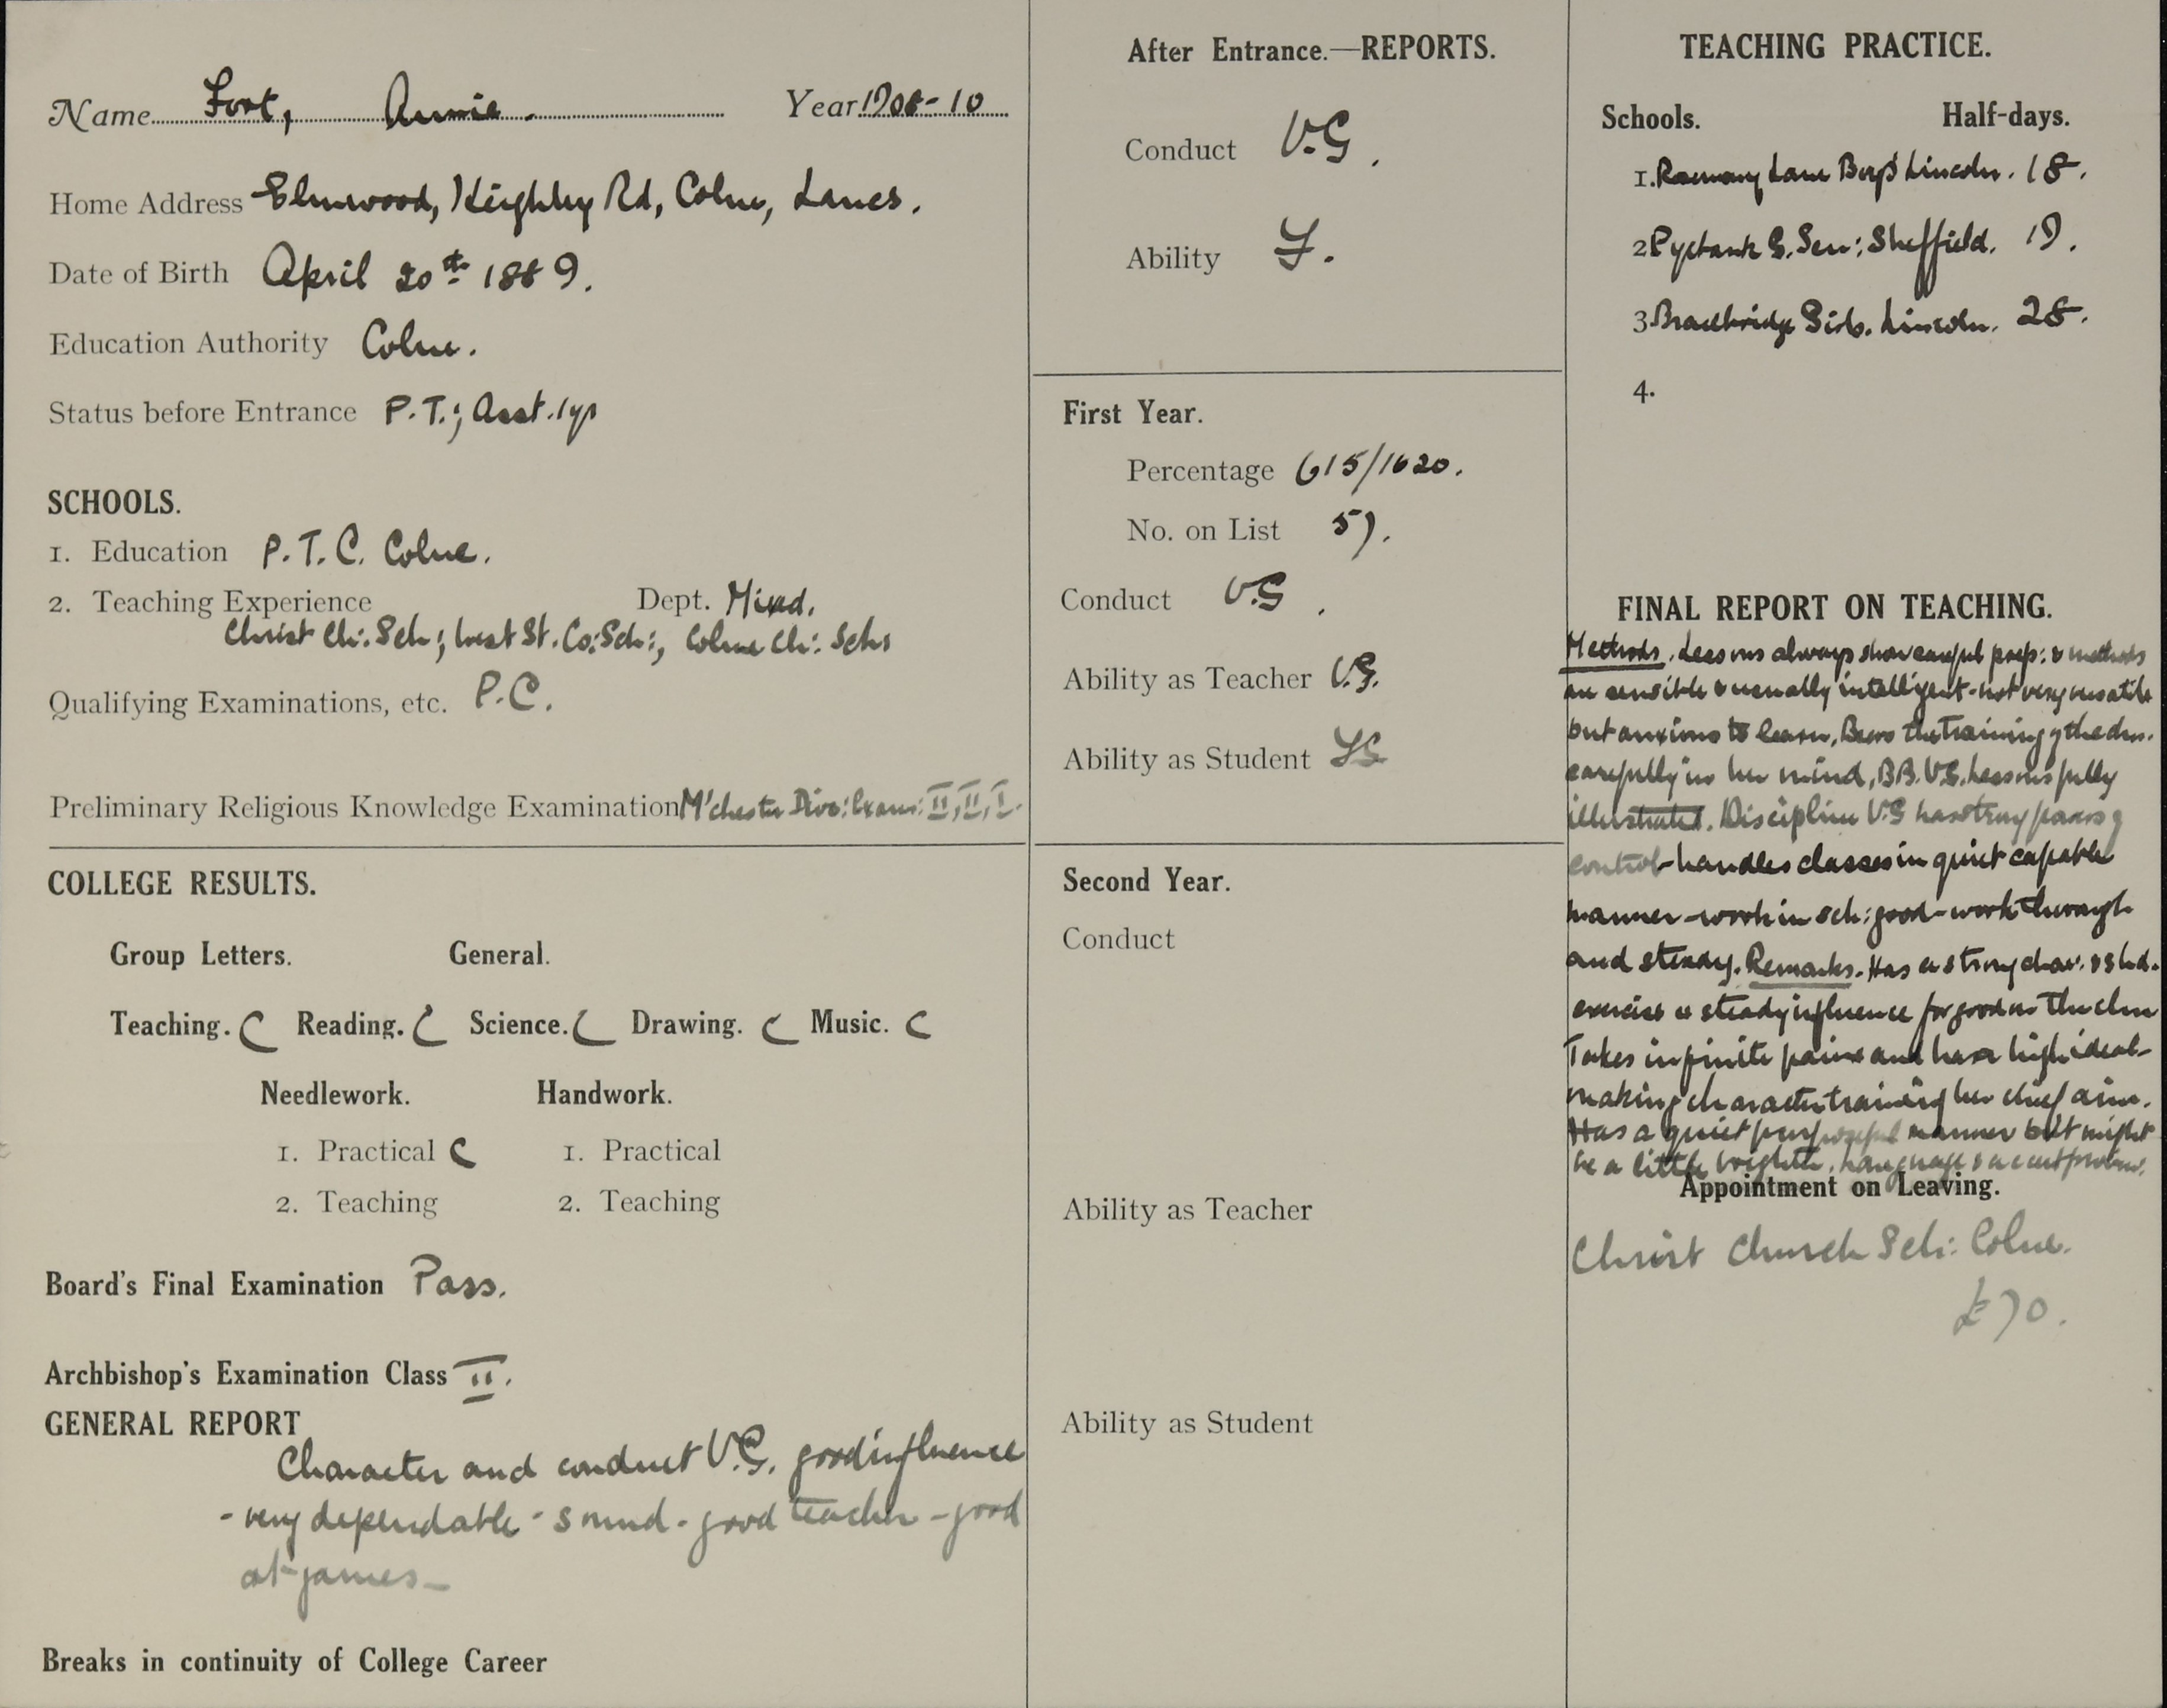 Name Fort, Annie. Year 1908-10
Home Address Elmwood, Keighley Rd, Colne, Lancs.
Date of Birth April 20th 1889.
Education Authority Colne.
Status before Entrance P.T.; Asst. 1yr
SCHOOLS.
1. Education P.T.C. Colne.
2. Teaching Experience Dept. Mixed.
Christ Ch: Sch; West St. Co: Sch:, Colne Ch: Schs
Qualifying Examinations, etc. P.C.
Preliminary Religious Knowledge Examination M'chester Dioc: Exam: II, II, I.
COLLEGE RESULTS.
Group Letters. General.
Teaching. C Reading. C Science. C Drawing. C Music. C
Needlework. Handwork.
1. Practical C 1. Practical
2. Teaching 2. Teaching
Board's Final Examination Pass.
Archbishop's Examination Class II.
GENERAL REPORT
Character and conduct V.G. good influence
- very dependable - sound - good teacher - good
at games -
Breaks in continuity of College Career
After Entrance.—REPORTS.
Conduct V.G.
Ability F.
First Year.
Percentage 615/1020.
No. on List 57.
Conduct V.G.
Ability as Teacher V.G.
Ability as Student FG
Second Year.
Conduct
Ability as Teacher
Ability as Student
TEACHING PRACTICE.
Schools. Half-days.
1. Rosemary Lane Boys' Lincoln. 18.
2 Pyebank G. Sen: Sheffield. 19.
3 Bracebridge Girls. Lincoln. 28.
4.
FINAL REPORT ON TEACHING.
Methods. Lessons always show careful prep: & methods
are sensible & usually intelligent - not very versatile
but anxious to learn. Bears the training of the chn.
carefully in her mind, B.B. V.G. Lessons fully
illustrated. Discipline V.G has strong powers of
control - handles classes in quiet capable
manner - work in sch: good - work thorough
and steady. Remarks. Has a strong char. & shd.
exercise a steady influence for good on the chn
Takes infinite pains and has a high ideal -
making character training her chief aim.
Has a quiet purposeful manner but might
be a little brighter. Language & accent
Appointment on Leaving.
Christ Church Sch: Colne.
£70.